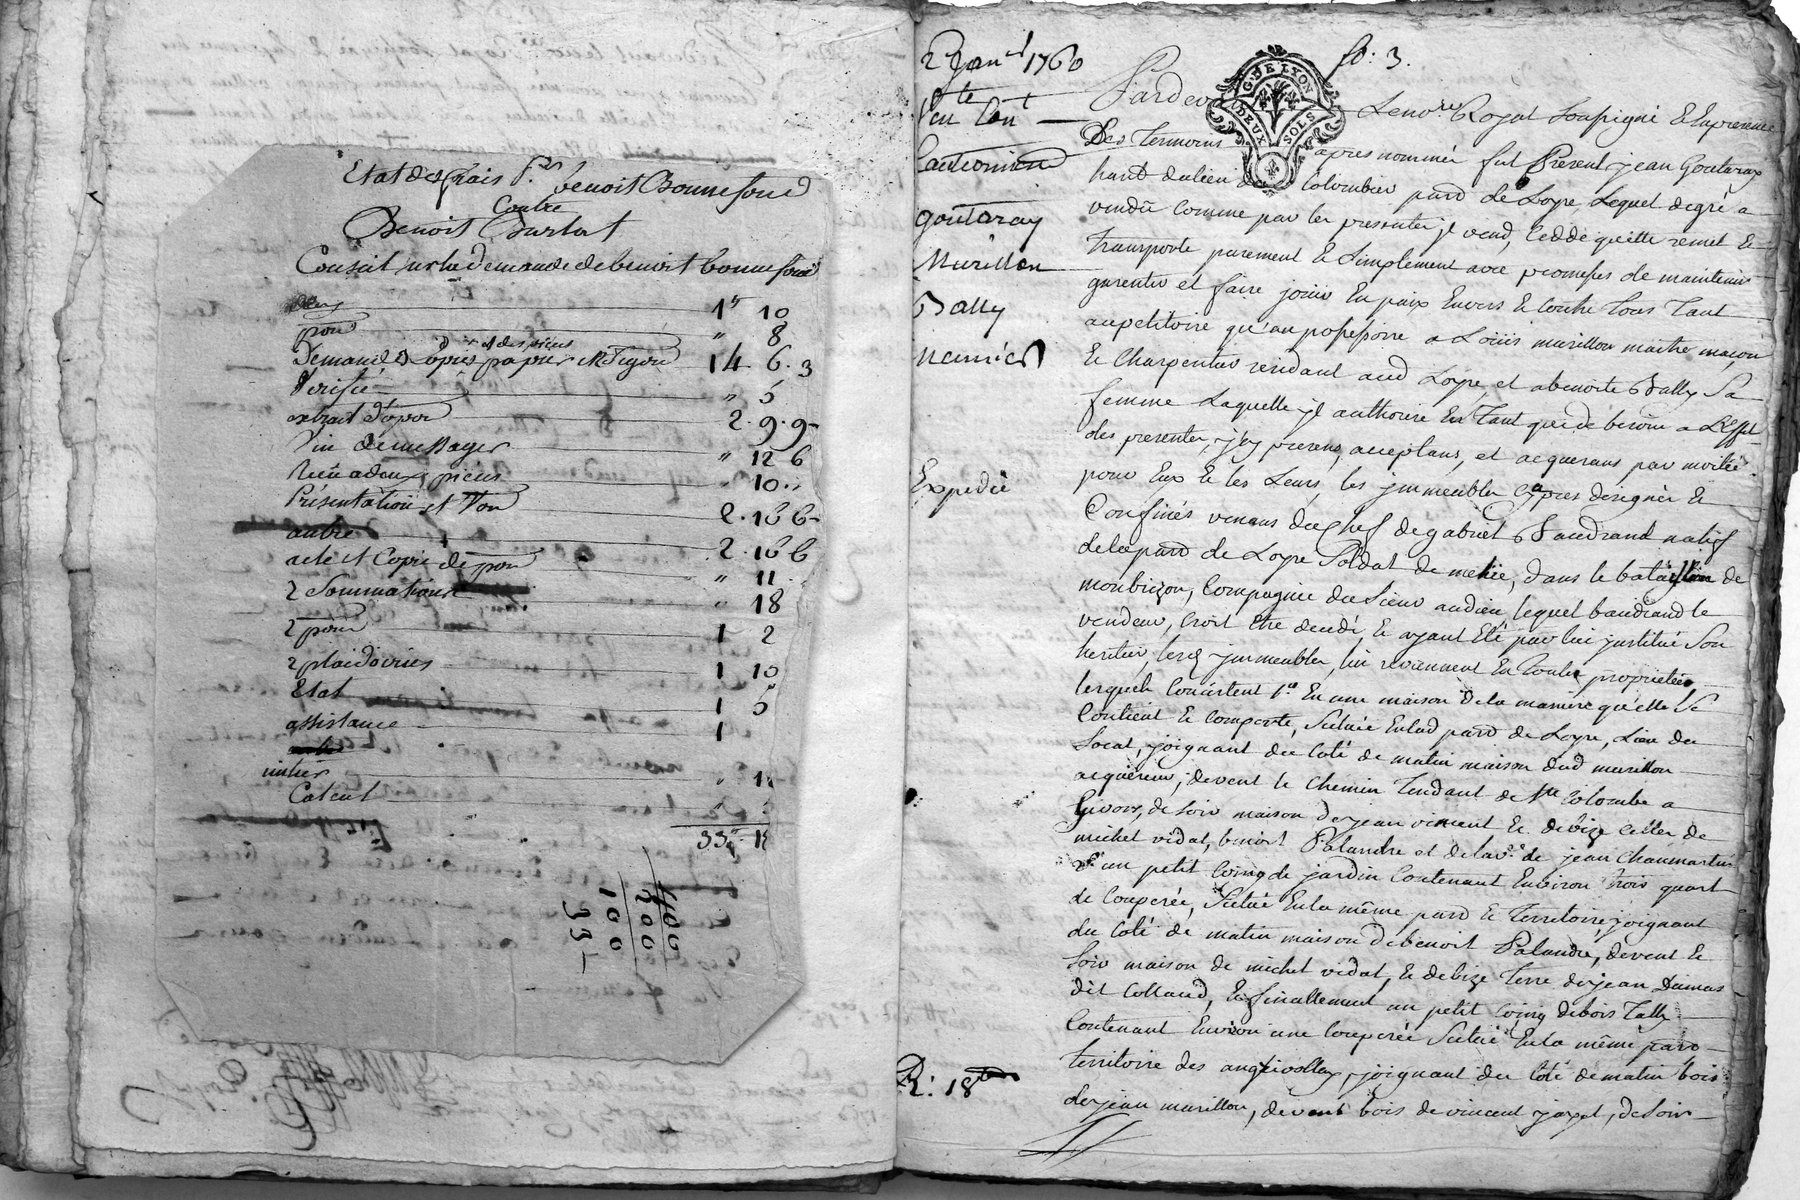 Etat des frais pr benoit Bonnefond
Contre
Benoit Burlat
Conseil sur la demande de benoit bonnefond
1# 10
" 8
Demande Copies papier et des pieces 14. 6. 3
Verifié " 5
extrait 2. 9. 9
Vin de messager " 12 6
Receu a deux pieces " 10 "
Presentation et 2. 16 6
autre 2. 16 6
acte et Copie de " 11
2 Sommations " 18
2 1 2
2 plaidoiries 1 10
Etat 1 5
assistance 1
Calcul "
33#
400
200
100
33
2 Janer 1760
fo: 3.
Vente
Cont
Goutaray
Murillon
Bally
Expedié
R: 18
G. DE LYON
DEUX SOLS
Pardev Le nore Royal soussigné & En presence
Des temoins apres nommés fut Present jean Goutaray
du lieu de Colombier paroe de Loyre, Lequel de gré a
vendu comme par les presentes jl vend, cedde quitte remet &
transporte purement & Simplement avec promesses de maintenir
garentir et faire joüir En paix Envers & Contre Tous Tant
au petitoire qu'au possessoire a Loüis murillon maitre maçon
& Charpentier residant aud Loyre, et a benoite Bally Sa
femme Laquelle jl authorise En Tant que de besoin a L'effet
des presentes, jcy presens, acceptans, et acquerans par moitié
pour Eux & les Leurs, les jmmeubles cy apres designés &
Confinés venans du chef de gabriel Baudrand natif
de la paroe de Loyre Soldat de milice, dans le bataillon de
monbrizon, Compagnie du Sieur audieu, lequel baudrand le
vendeur, Croit Etre decedé, & ayant Eté par lui jnstitué Son
heritier, lesd jmmeubles, lui reviennent En Toutes proprietés
lesquels Consistent 1o En une maison De la maniere qu'elle Se
Contient & Comporte, Scituée En lad paroe de Loyre, Lieu du
Socat, joignant du Coté de matin maison dud murillon
acquereur, devent le Chemin Tendant de Ste Colombe a
Givors, de soir maison de jean vincent & de bize Celles de
michel vidal, benoit Palandre et de la ve de jean Chaumartin
2o un petit Coing de jardin Contenant Environ Trois quart
de Couperée, Scitué En la même paroe & Territoire, joignant
du Coté de matin maison De benoit Palandre, devent &
Soir maison de michel vidal, & de bize Terre de jean Dumas
dit Collaud, & finallement un petit Coing de bois Tally
Contenant Environ une Couperée Scitué En la même paroe
Territoire des joignant du Coté de matin bois
de jean murillon, devent bois de vincent jayet, de Soir